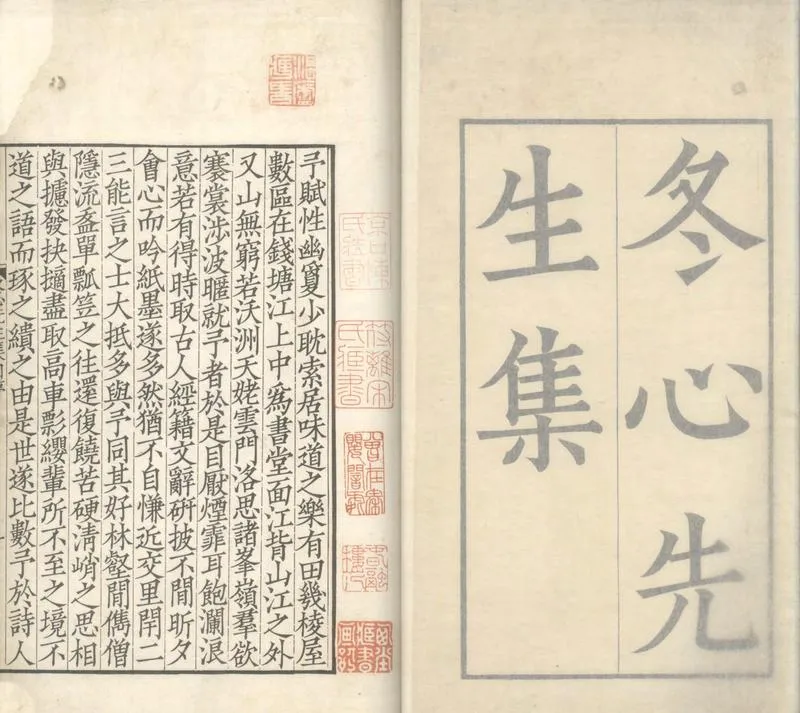 冬心先
生集
予賦性幽敻少耽索居味道之樂有田幾棱屋
數區在錢塘江上中爲書堂面江背山江之外
又山無窮若沃洲天姥雲門洛思諸峯嶺羣欲
褰裳涉波暱就予者於是目厭煙霏耳飽瀾浪
意若有得時取古人經籍文辭硏披不閒昕夕
會心而吟紙墨遂多然猶不自慊近交里閈二
三能言之士大抵多與予同其好林壑閒儁僧
隱流盋單瓢笠之往還復饒苦硬淸峭之思相
與攄發抉擿盡取高車彯纓輩所不至之境不
道之語而琢之繢之由是世遂比數予於詩人